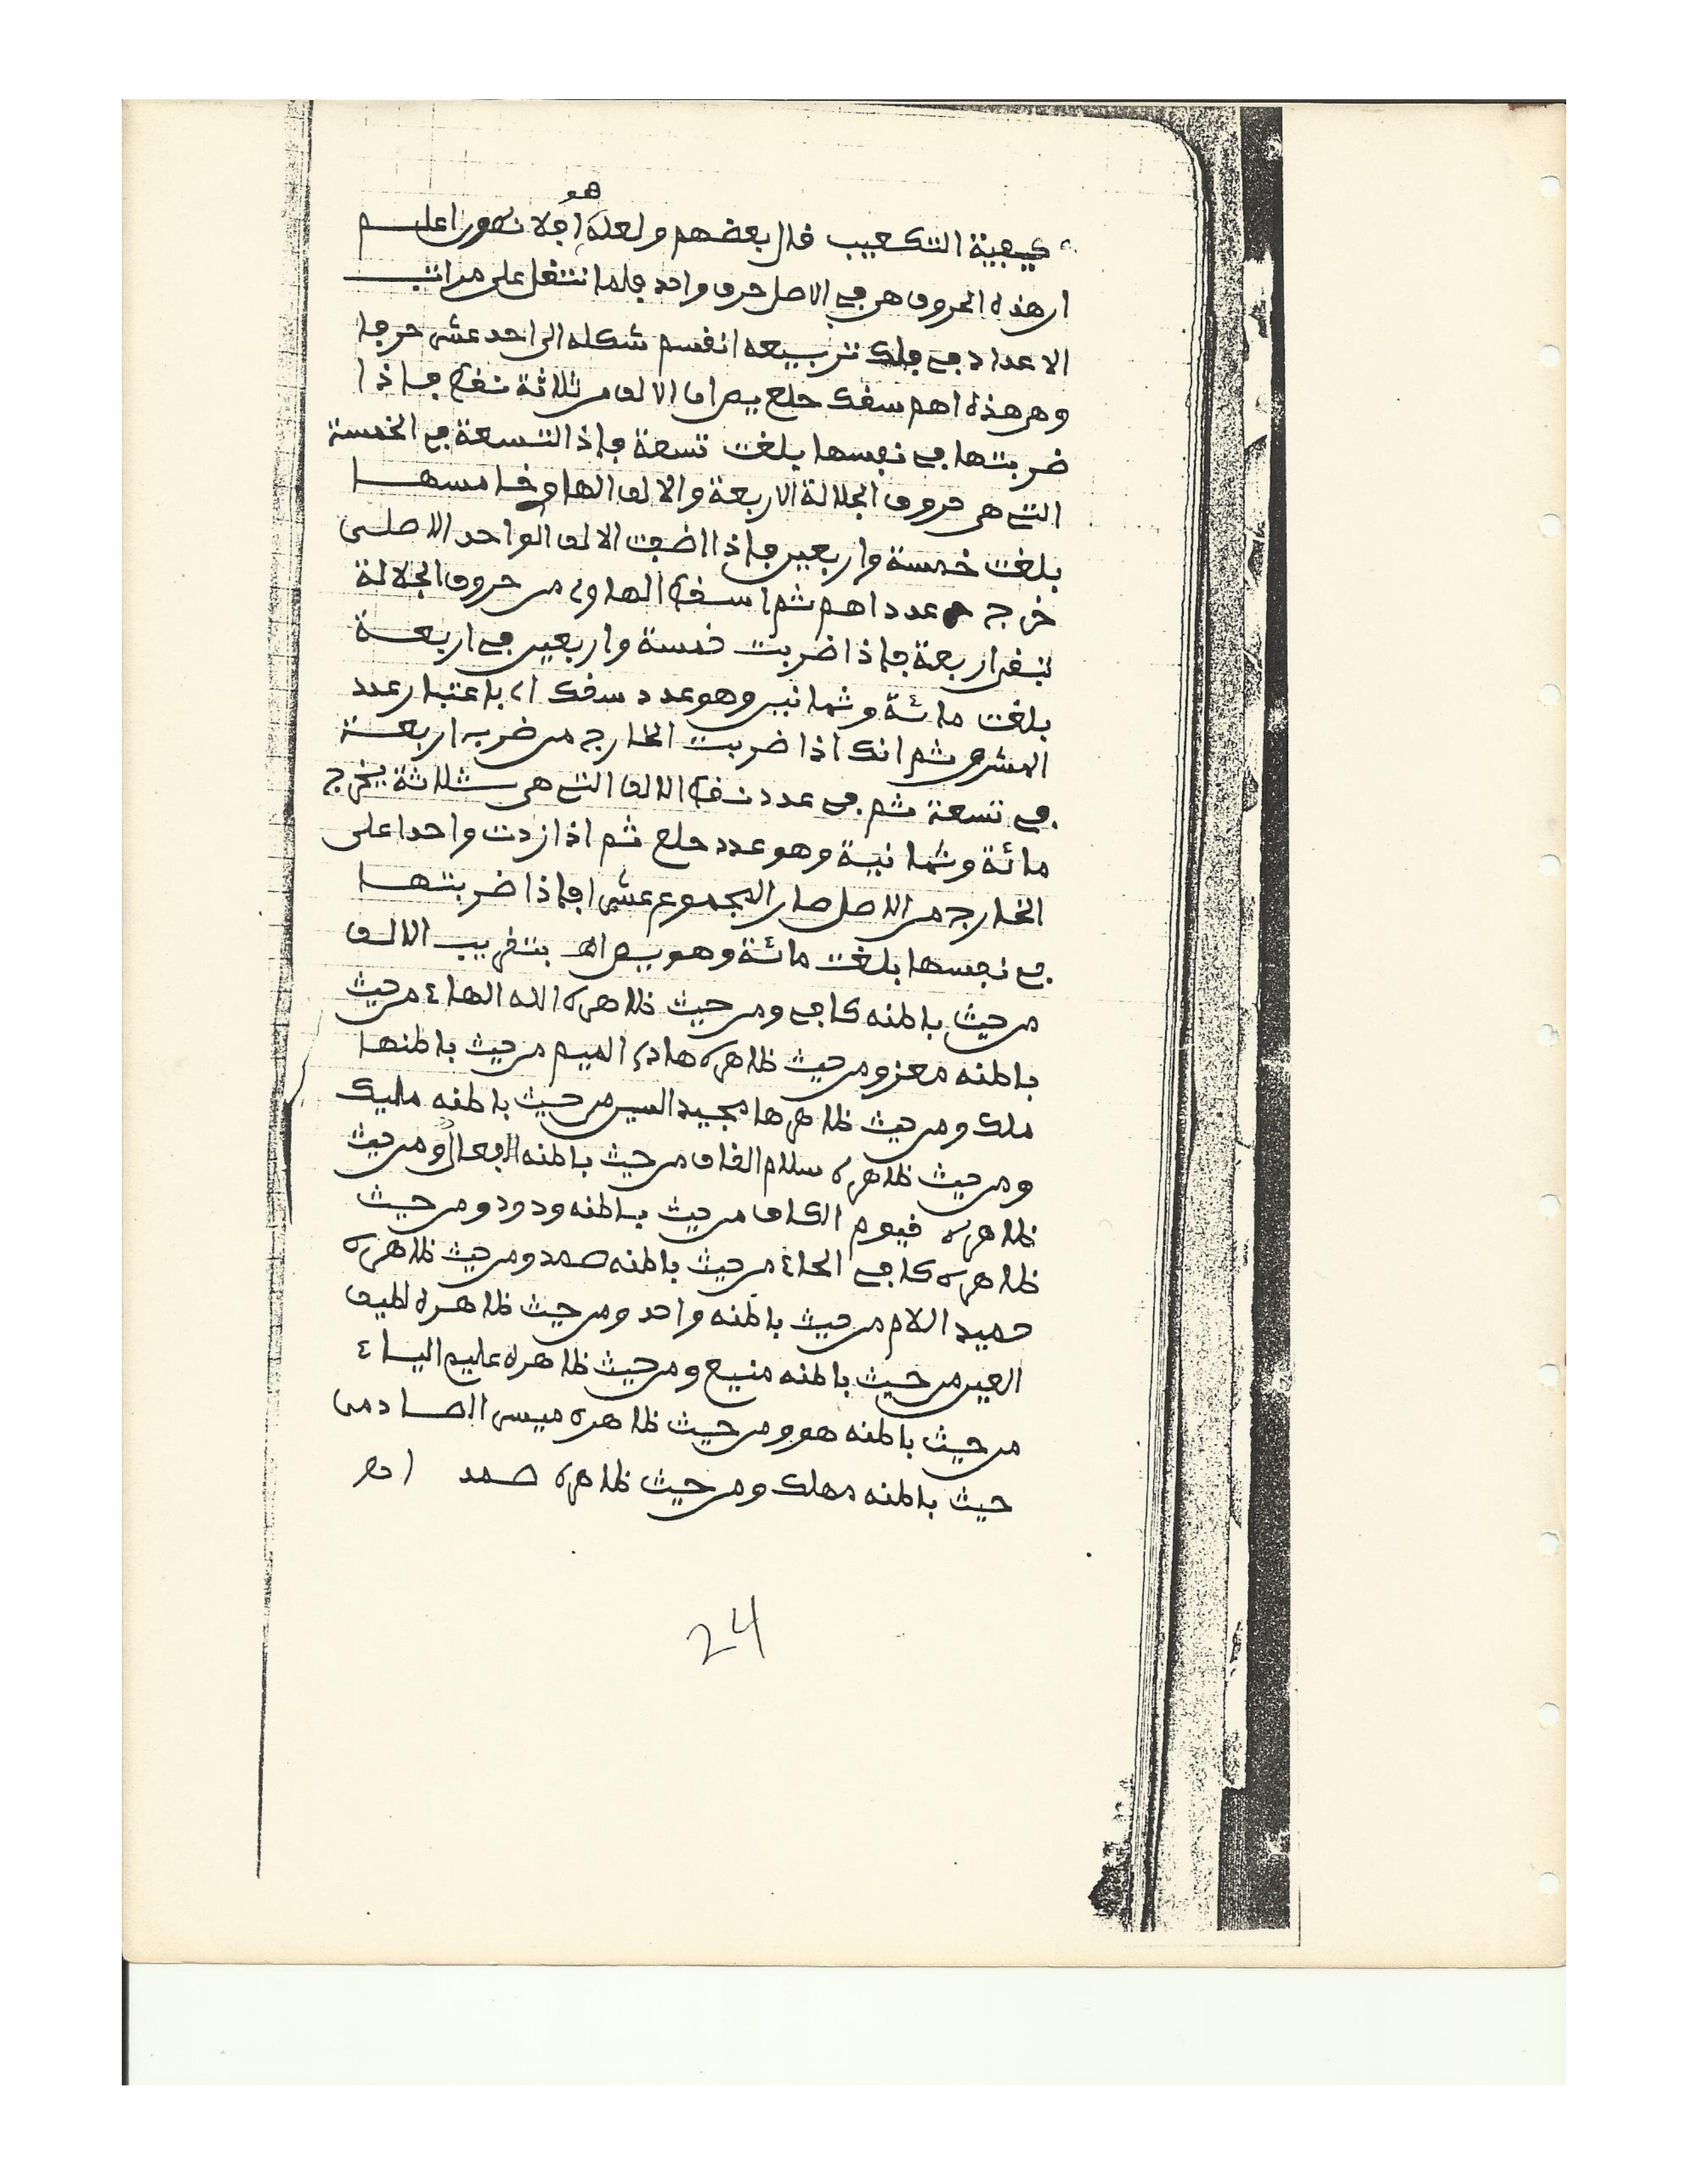 كيفية التكعيب قال بعضهم ولعله هو
ان هذه الحروف هي في الاصل حرف واحد فلما انتقل على مراتب
الاعداد في فلك تربيعه انقسم شكله الى احد عشر حرفا
وهي هذه اهم سفك حلع يص اما الالف من ثلاثة نقط فاذا
ضربتها في نفسها بلغت تسعة فاذا التسعة في الخمسة
التي هي حروف الجلالة الاربعة والالف الهاوي خامسها
بلغت خمسة واربعين فاذا اضفت الالف الواحد الاصلي
خرج عدد اهم ثم اسقط الهاوي من حروف الجلالة
تبقى اربعة فاذا ضربت خمسة واربعين في اربعة
بلغت مائة وثمانين وهو عدد سفك اي باعتبار عدد
المشرق ثم انك اذا ضربت الخارج من ضرب اربعة
في تسعة ثم في عدد نقط الالف التي هي ثلاثة يخرج
مائة وثمانية وهو عدد حلع ثم اذا زدت واحدا على
الخارج من الاصل صار المجموع عشرا فاذا ضربتها
في نفسها بلغت مائة وهو يص اهـ بتقريب الالف
من حيث باطنه كافي ومن حيث ظاهره الله الهاء من حيث
باطنه معز ومن حيث ظاهره هادي الميم من حيث باطنها
ملك ومن حيث ظاهرها مجيد السين من حيث باطنه مليك
ومن حيث ظاهره سلام القاف من حيث باطنه الفعال ومن حيث
ظاهره قيوم الكاف من حيث باطنه ودود ومن حيث
ظاهره كافي الحاء من حيث باطنه صمد ومن حيث ظاهره
حميد اللام من حيث باطنه واحد ومن حيث ظاهره لطيف
العين من حيث باطنه منيع ومن حيث ظاهره عليم الياء
من حيث باطنه هو ومن حيث ظاهره ميسر الصاد من
حيث باطنه مهلك ومن حيث ظاهره صمد
24